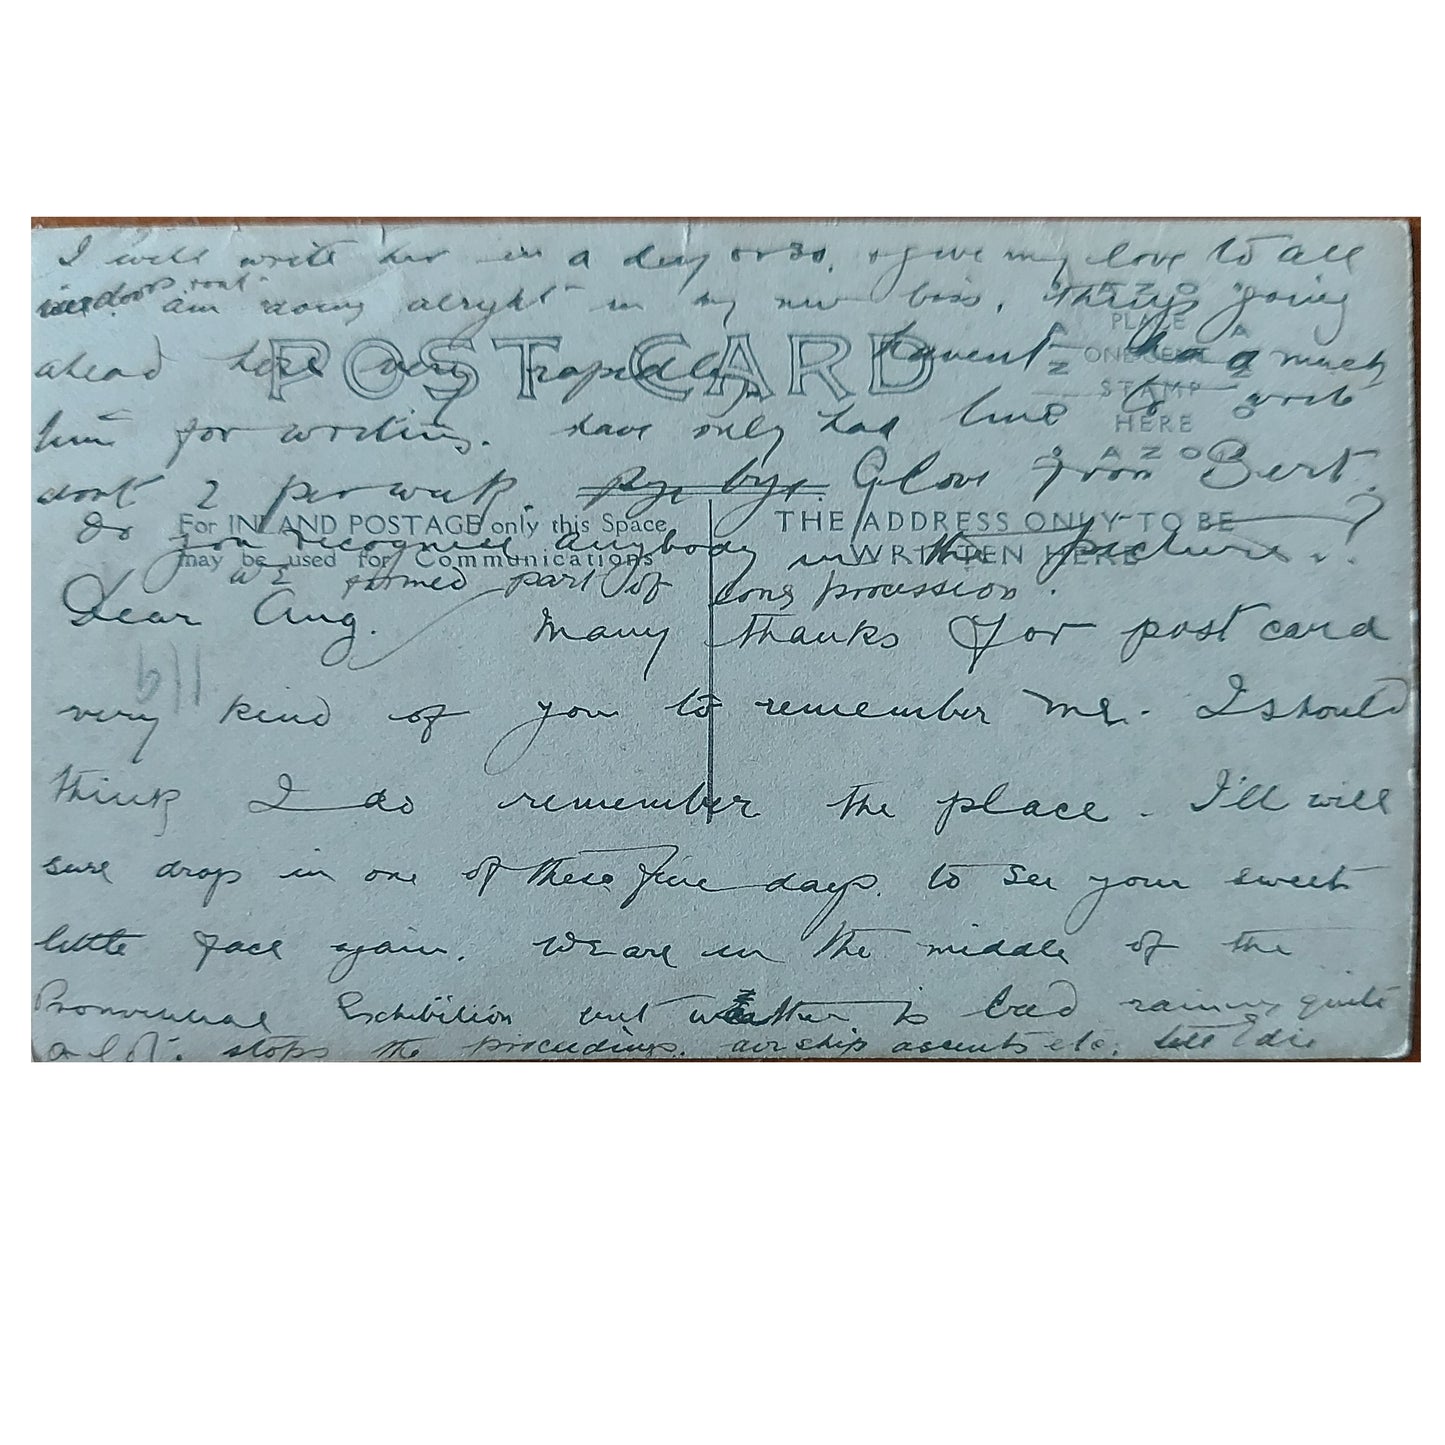 I will write her in a day or so, & give my love to all
indoors. am doing alryht in my new biss. Things going
ahead here very rapidly. havent had a much
time for writing. have only had time to write
dont 2 per week. Bye bye. Love from Bert.
POST CARD
AZO
PLACE
ONE CENT
STAMP
HERE
AZO
For INLAND POSTAGE only this Space
may be used for Communications
THE ADDRESS ONLY TO BE
WRITTEN HERE
Do you recognise anybody in the picture..?
WE formed part of long procession.
Dear Aug. Many thanks for post card
very kind of you to remember me. I should
think I do remember the place. I'll will
sure drop in one of these fine days. to see your sweet
little face again. We are in the middle of the
Exhibition but weather is bad raining quite
a lot. stops the proceedings. airship ascents etc. tell Edie